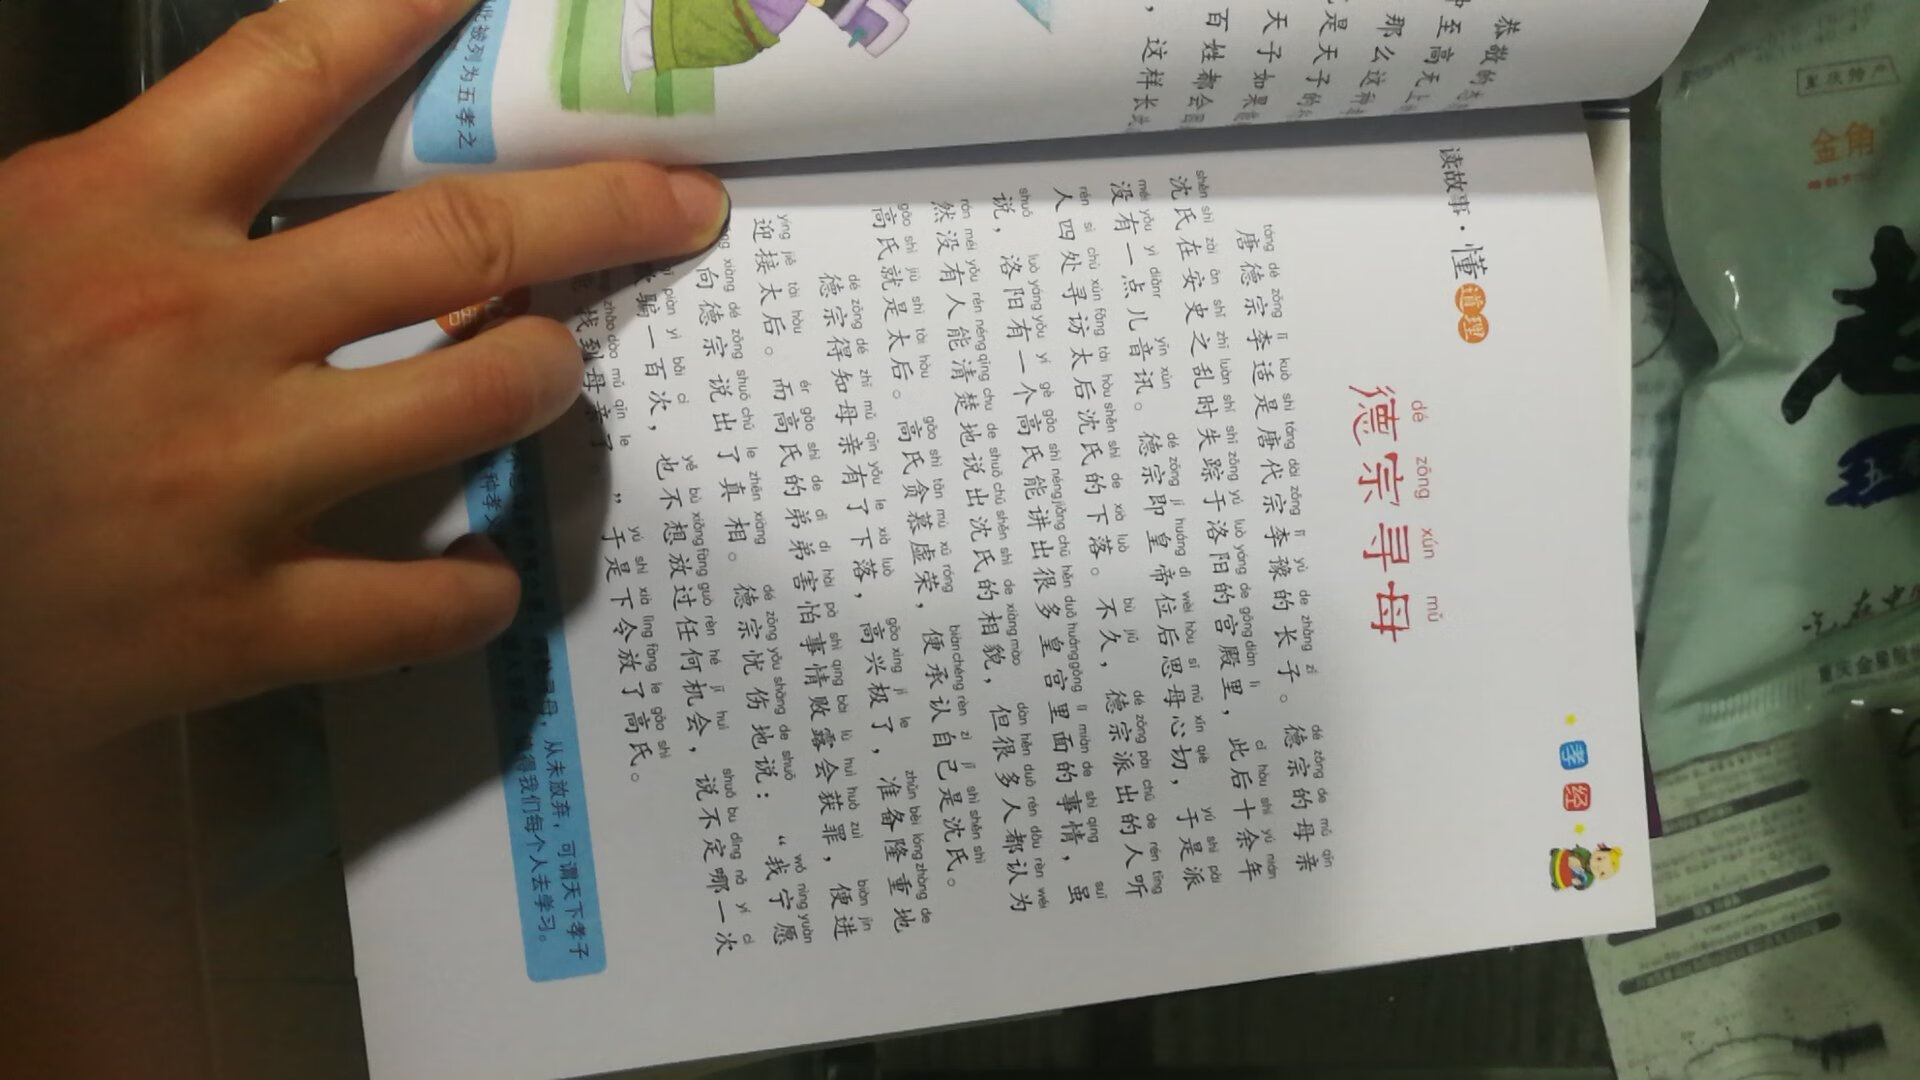 读故事·懂道理
孝经
dé zōng xún mǔ
德宗寻母
táng dé zōng lǐ kuò shì táng dài zōng lǐ yù de zhǎng zǐ dé zōng de mǔ qīn
唐德宗李适是唐代宗李豫的长子。德宗的母亲
shěn shì zài ān shǐ zhī luàn shí shī zōng yú luò yáng de gōng diàn lǐ cǐ hòu shí yú nián
沈氏在安史之乱时失踪于洛阳的宫殿里，此后十余年
méi yǒu yì diǎnr yīn xùn dé zōng jí huáng dì wèi hòu sī mǔ xīn qiè yú shì pài
没有一点儿音讯。德宗即皇帝位后思母心切，于是派
rén sì chù xún fǎng tài hòu shěn shì de xià luò bù jiǔ dé zōng pài chū de rén tīng
人四处寻访太后沈氏的下落。不久，德宗派出的人听
shuō luò yáng yǒu yí gè gāo shì néng jiǎng chū hěn duō huáng gōng lǐ miàn de shì qing suī
说，洛阳有一个高氏能讲出很多皇宫里面的事情，虽
rán méi yǒu rén néng qīng chu de shuō chū shěn shì de xiàng mào dàn hěn duō rén dōu rèn wéi
然没有人能清楚地说出沈氏的相貌，但很多人都认为
gāo shì jiù shì tài hòu gāo shì tān mù xū róng biàn chéng rèn zì jǐ shì shěn shì
高氏就是太后。高氏贪慕虚荣，便承认自己是沈氏。
dé zōng dé zhī mǔ qīn yǒu le xià luò gāo xìng jí le zhǔn bèi lóng zhòng de
德宗得知母亲有了下落，高兴极了，准备隆重地
yíng jiē tài hòu ér gāo shì de dì di hài pà shì qing bài lù huì huò zuì biàn jìn
迎接太后。而高氏的弟弟害怕事情败露会获罪，便进
xiàng dé zōng shuō chū le zhēn xiàng dé zōng yōu shāng de shuō wǒ nìng yuàn
向德宗说出了真相。德宗忧伤地说：“我宁愿
piàn yì bǎi cì yě bù xiǎng fàng guò rèn hé jī huì shuō bu dìng nǎ yí cì
骗一百次，也不想放过任何机会，说不定哪一次
zhǎo dào mǔ qīn le yú shì xià lìng fàng le gāo shì
找到母亲了。”于是下令放了高氏。
寻母，从未放弃，可谓天下孝子
种孝
得我们每个人去学习。
恭敬的
至高无上
那么这种
是天子的
天子如果
百姓都会
，这样长
此被列为五孝之